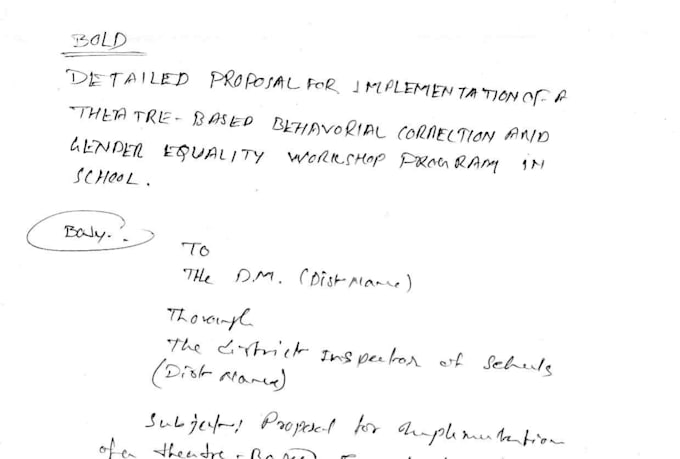 BOLD
DETAILED PROPOSAL FOR IMPLEMENTATION OF A
THEATRE-BASED BEHAVORIAL CORRECTION AND
GENDER EQUALITY WORKSHOP PROGRAM IN
SCHOOL.
Body:
TO
THE D.M. (Dist Name)
Thorough
The district inspector of schools
(Dist Name)
Subject: Proposal for implementation
of a theatre-Based